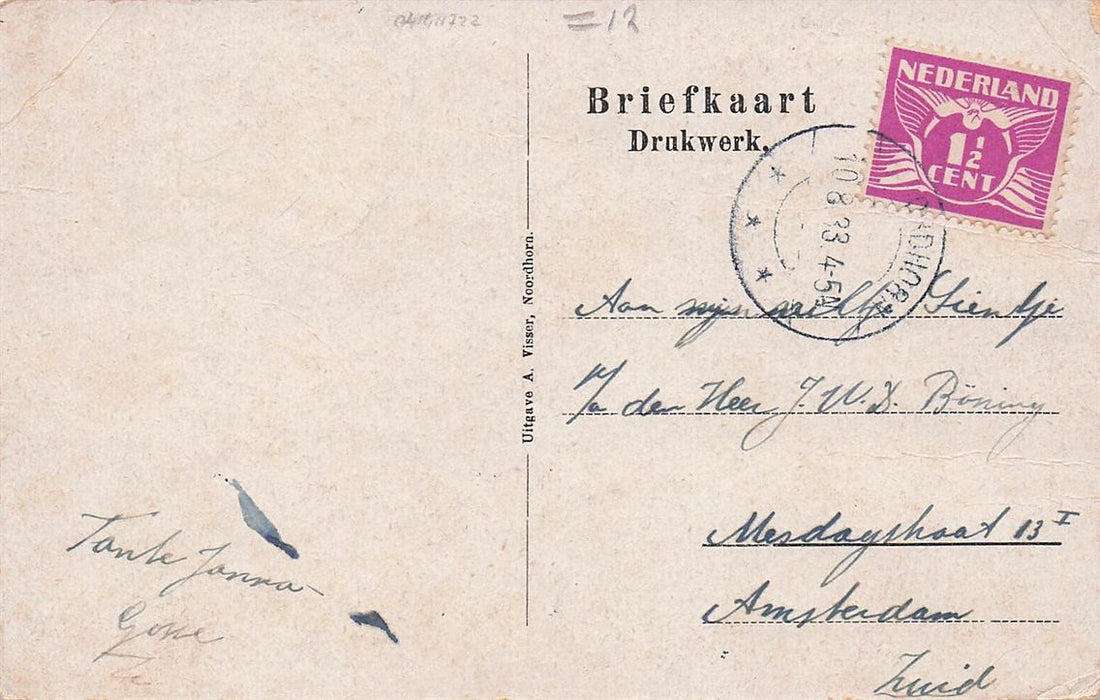 =12
Briefkaart
Drukwerk.
NEDERLAND
1½
CENT
10 8 33.4-5N
Uitgave A. Visser, Noordhorn.
Aan mijn nichtje Sientje
p/a den Heer J. W. D. Böning
Mesdagstraat 13 I
Amsterdam
Zuid
Tante Janna